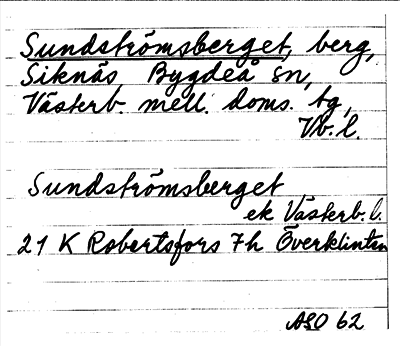 Sundströmsberget, berg,
Siknäs Bygdeå sn,
Västerb. mell. doms. tg,
Vb. l.
Sundströmsberget
ek Västerb. l.
21 K Robertsfors 7h Överklinten
ASO 62